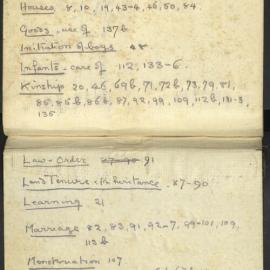 Houses 8, 10, 19, 43-4, 46, 50, 84
Goods, use of 137b
Initiation of boys 48
Infants - care of 112, 133-6.
Kinship 20, 46, 69b, 71, 72b, 73, 79, 81,
85, 85b, 86b, 87, 92, 99, 109, 112b, 131-3,
135
Law-Order 87-90 91
Land Tenure & Inheritance. 87-90
Learning 21
Marriage 82, 83, 91, 92-7, 99-101, 109,
113b
Menstruation 107